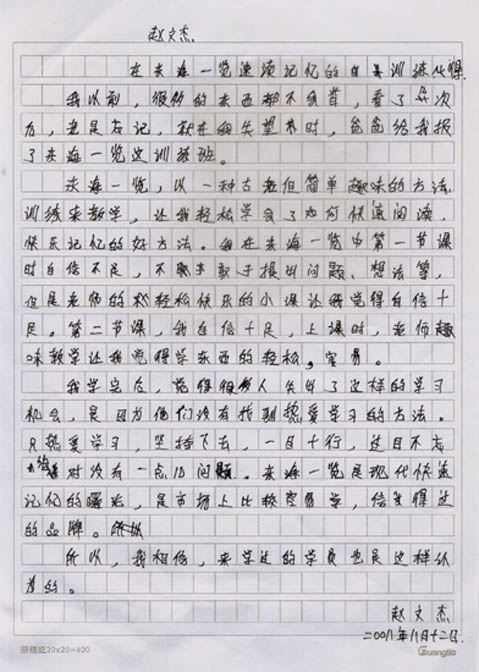 赵文杰
在东海一览速读记忆的自身训练心得
我以前，很多的东西都不会背，看了几次
后，老是忘记，就在我失望书时，爸爸给我报
了东海一览这训练班。
东海一览，以一种古老但简单趣味的方法，
训练来教学，让我轻松学会了如何快速阅读，
快乐记忆的好方法。我在东海一览中第一节课
时自信不足，不敢敢于提出问题、想法等，
但是老师的轻松快乐的小课让我觉得自信十
足。第二节课，我自信十足，上课时，老师趣
味教学让我觉得学东西的轻松，容易。
我学完后，觉得很多人失出了这样的学习
机会，是因为他们没有找到热爱学习的方法。
只热爱学习，坚持下去，一目十行，过目不忘
对没有一点儿问题。东海一览是现代快速
记忆的曙光，是市场上比较容易学，信得过
的品牌。
所以，我相信，来学过的学员也是这样认
为的。
赵文杰
20011年11月十二日.
原稿纸20x20=400
Guangbo